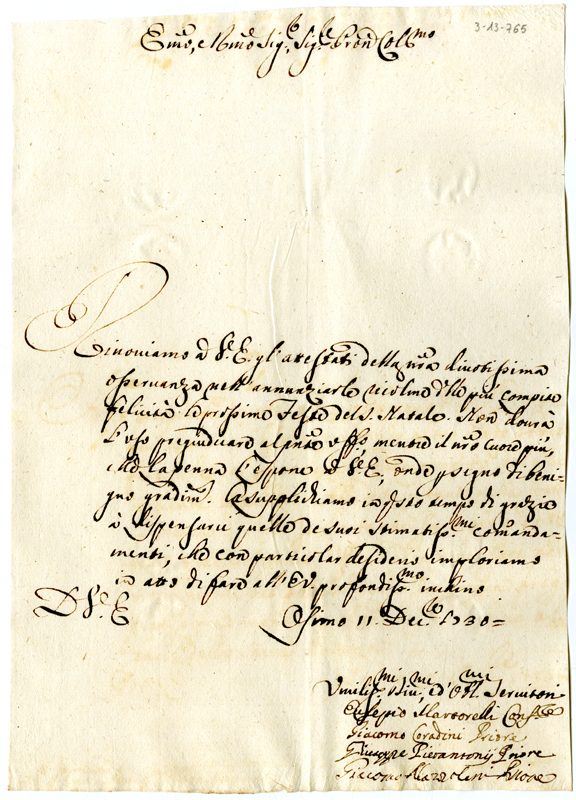 3-13-765
Emo, e Rmo Sig.r, Sig.r Pron Col.mo
Rinoviamo à V.E. gl'attestati della nra divotissima
osseruanza nell'annunziarle ricolme delle più compite
felicità le prossime Feste del S. Natale. Non dourà
l'uso pregiudicare al pnte uffo, mentre il nro cuore più,
che la penna l'espone à V.E., onde p segno di beni-
gno gradim.to La supplichiamo in qsto tempo di grazie
à dispensarci quelle de suoi stimatiss.mi comanda-
menti, che con particolar desiderio imploriamo
in atto di fare all'EV. profondiss.mo inchino
D V.E.
Osimo 11. Dec.e 1730=
Vmiliss.mi Diu.mi, ed Obl.mi Seruitori
Giuseppe Martorelli Conf.re
Giacomo Coradini Priore
Giuseppe Pierantonij Priore
Giacomo Mazzoleni Priore